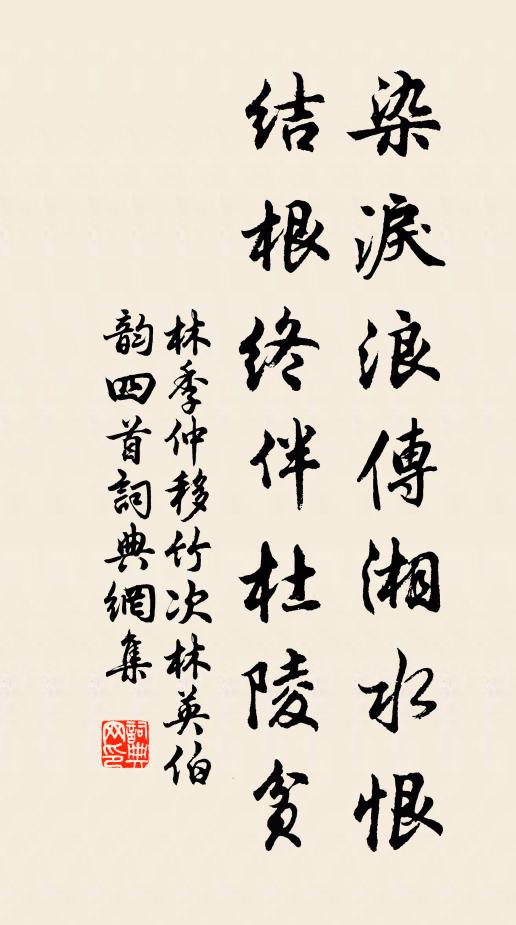 染淚浪傳湘水恨
結根終伴杜陵貧
林季仲移竹次林英伯
韵四首詞典網集
詞典
网印